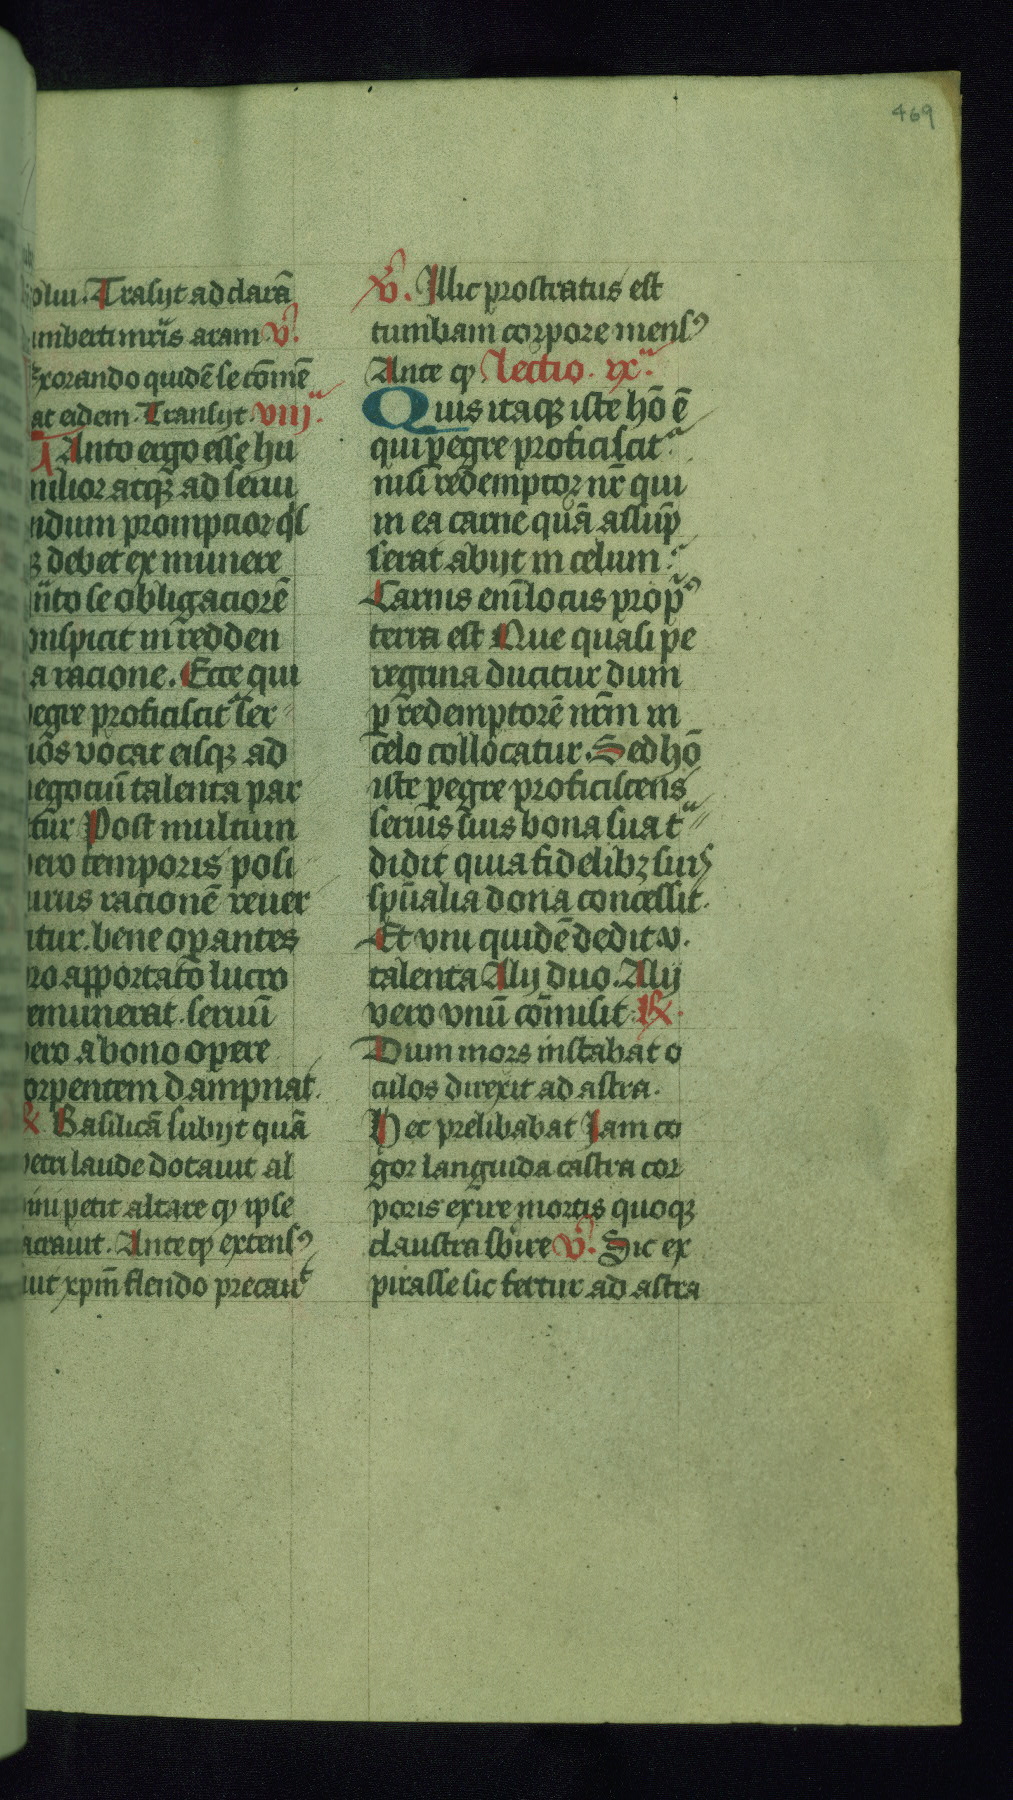 469
olui. Trāsijt ad clarā
umberti mr̄is aram v̕.
xorando quidē se cōmē
at eidem. Transijt. viij.ᵃ
Tanto ergo esse hu
milior atqꝫ ad serui
ndum prompcior qͥs
ꝫ debet ex munere
nto se obligaciorē
onspicit in redden
a racione. Ecce qui
egre proficiscitᷣ ser
uos vocat eisqꝫ ad
negociū talenta par
tur Post multum
vero temporis posi
urus racionē reuer
titur. bene oꝑantes
pro apportato lucro
remunerat. seruū
vero a bono oꝑere
torpentem dampnat.
℟ Basilicā subijt quā
petri laude dotauit al
petit altare qͥ ipse
sacrauit. Ante qͥ extensꝰ
xp̄m flendo precatᷣ
v̕. Illic prostratus est
tumbam corpore mensꝰ
Ante qͥ Lectio. ix.ᵃ
Quis itaqꝫ iste hō ē
qui ꝑegre proficiscitᷣ
nisi redemptor nr̄ qui
in ea carne quā assūp
serat abijt in celum.
Carnis enī locus propͥꝰ
terra est Que quasi pe
regrina ducitur dum
ꝑ redemptorē nr̄m in
celo collocatur. Sed hō
iste ꝑegre proficiscens
seruis suis bona sua tᷓ
didit quia fidelibꝫ suis
sp̄ualia dona concessit.
Et vni quidē dedit v.
talenta Alij duo. Alij
vero vnū cōmisit. ℟.
Dum mors instabat o
culos direxit ad astra.
Hec prelibabat Iam co
gor languida castra cor
poris exire mortis quoqꝫ
claustra sbͥire v̕. Sic ex
pirasse sic fertur ad astra